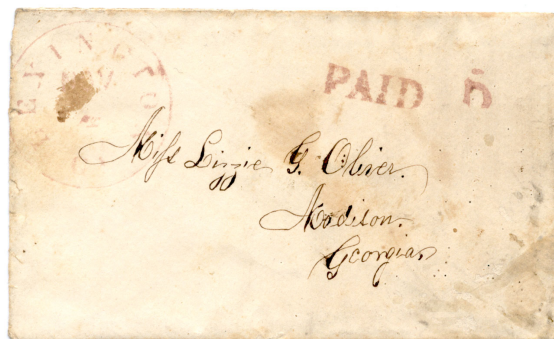 PAID 5
Miss Lizzie G. Oliver.
Madison.
Georgia